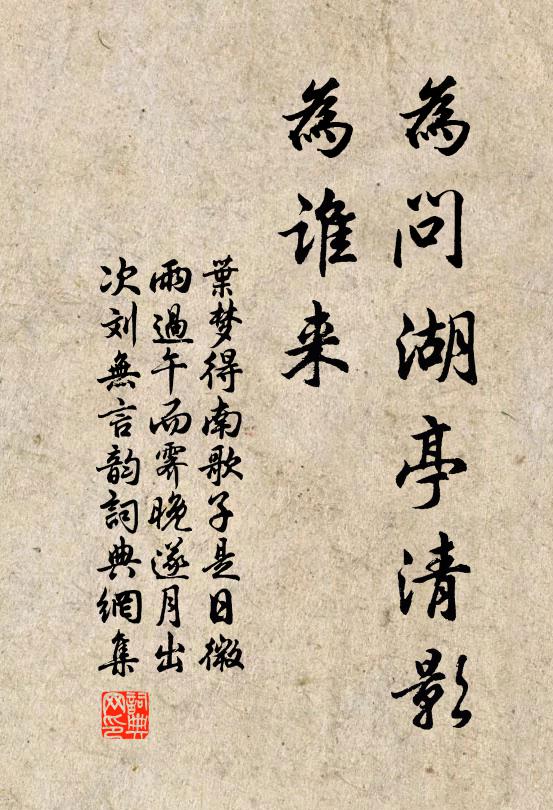 為問湖亭清影
為谁来
葉梦得南歌子是日微
雨過午而霽晚遂月出
次刘無言韵詞典網集
詞典
网印